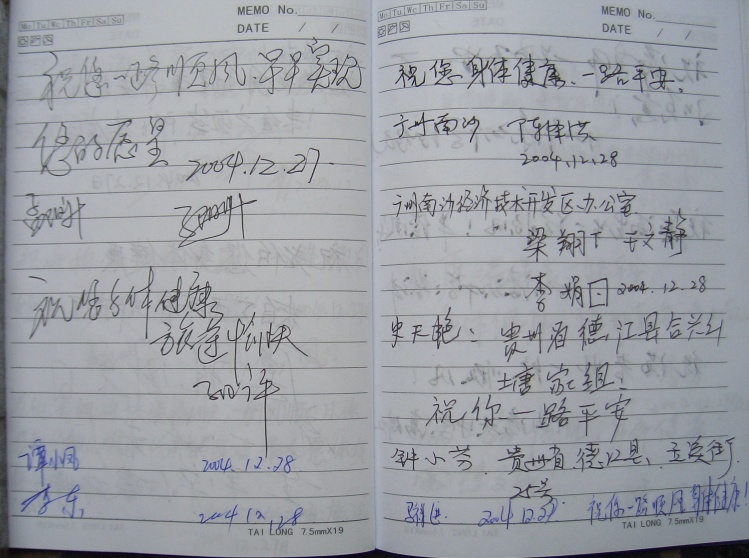 Mo Tu We Th Fr Sa Su
MEMO No.
DATE / /
祝您一路顺风,早早实现
您的愿望
2004.12.27.
祝您身体健康
旅途愉快
谭小凤 2004.12.28
李东 2004.12.28
TAI LONG 7.5mmX19
Mo Tu We Th Fr Sa Su
MEMO No.
DATE / /
祝您身体健康、一路平安。
广州南沙 陈伟洪
2004.12.28
广州南沙经济技术开发区办公室
梁翔 文静
李娟 2004.12.28
史天艳: 贵州省德江县合兴乡
塘家组.
祝你一路平安
钟小芬. 贵州省德江县、玉溪街
25号
2004.12.27 祝你一路顺风 身体健康!
TAI LONG 7.5mmX19